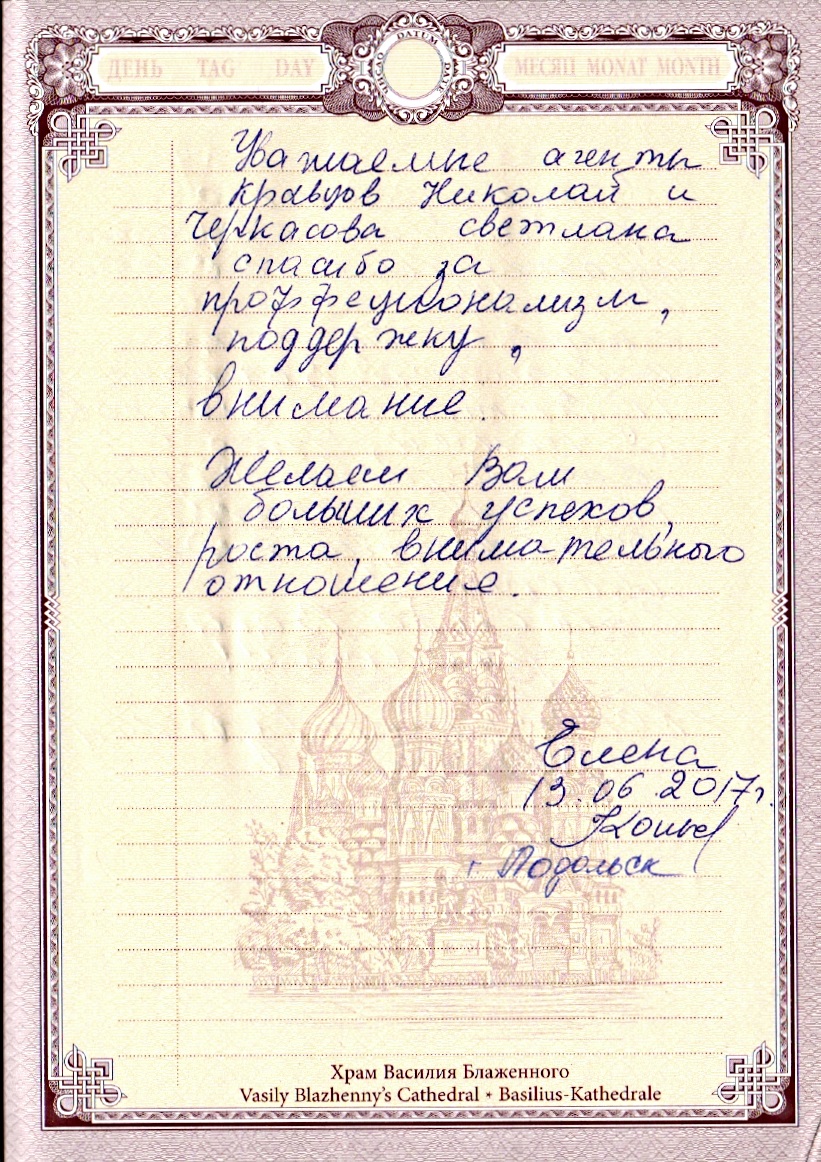 ДЕНЬ TAG DAY DATUM МЕСЯЦ MONAT MONTH
Уважаемые агенты
Кравцов Николай и
Черкасова светлана
спасибо за
проффеционализм,
поддержку,
внимание.
Желаем Вам
больших успехов,
роста, внимательного
отношение.
Елена
13.06 2017г.
г Подольск
Храм Василия Блаженного
Vasily Blazhenny's Cathedral * Basilius-Kathedrale